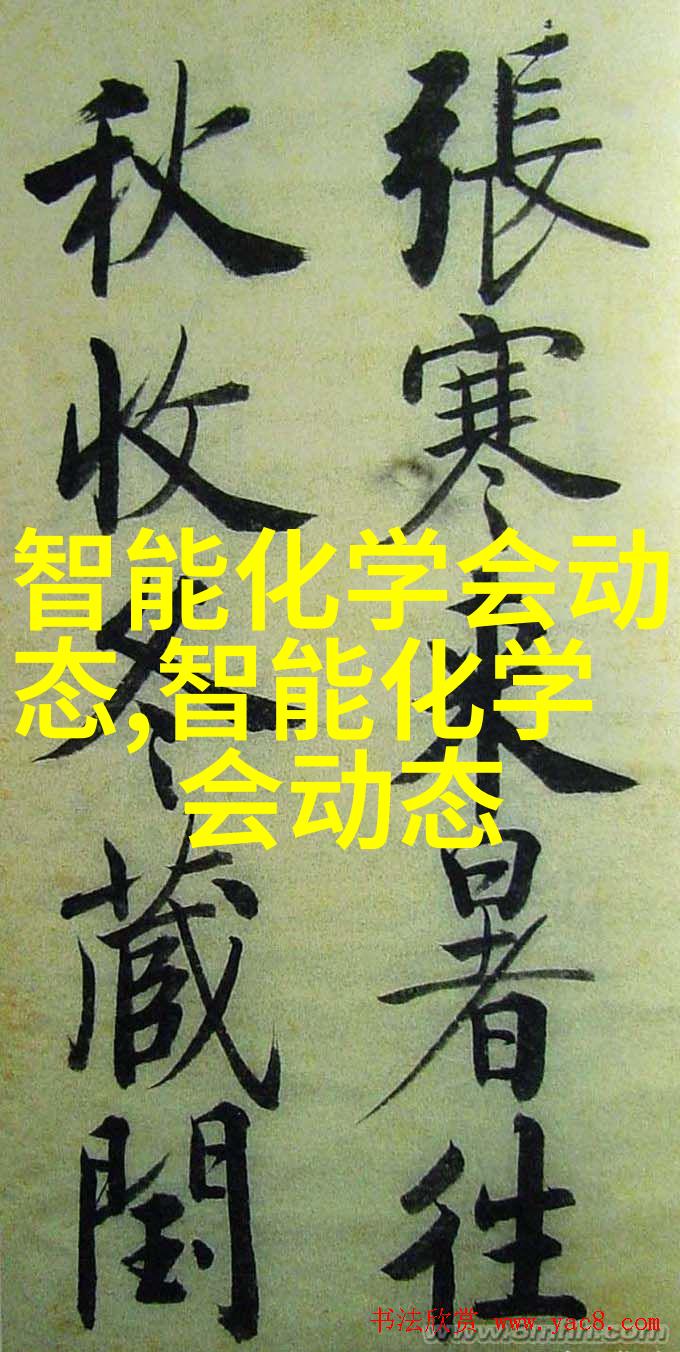 張寒来暑往
秋收冬蔵閏
智能化学会动
态,智能化学
会动态
书法欣赏 www.yac8.com